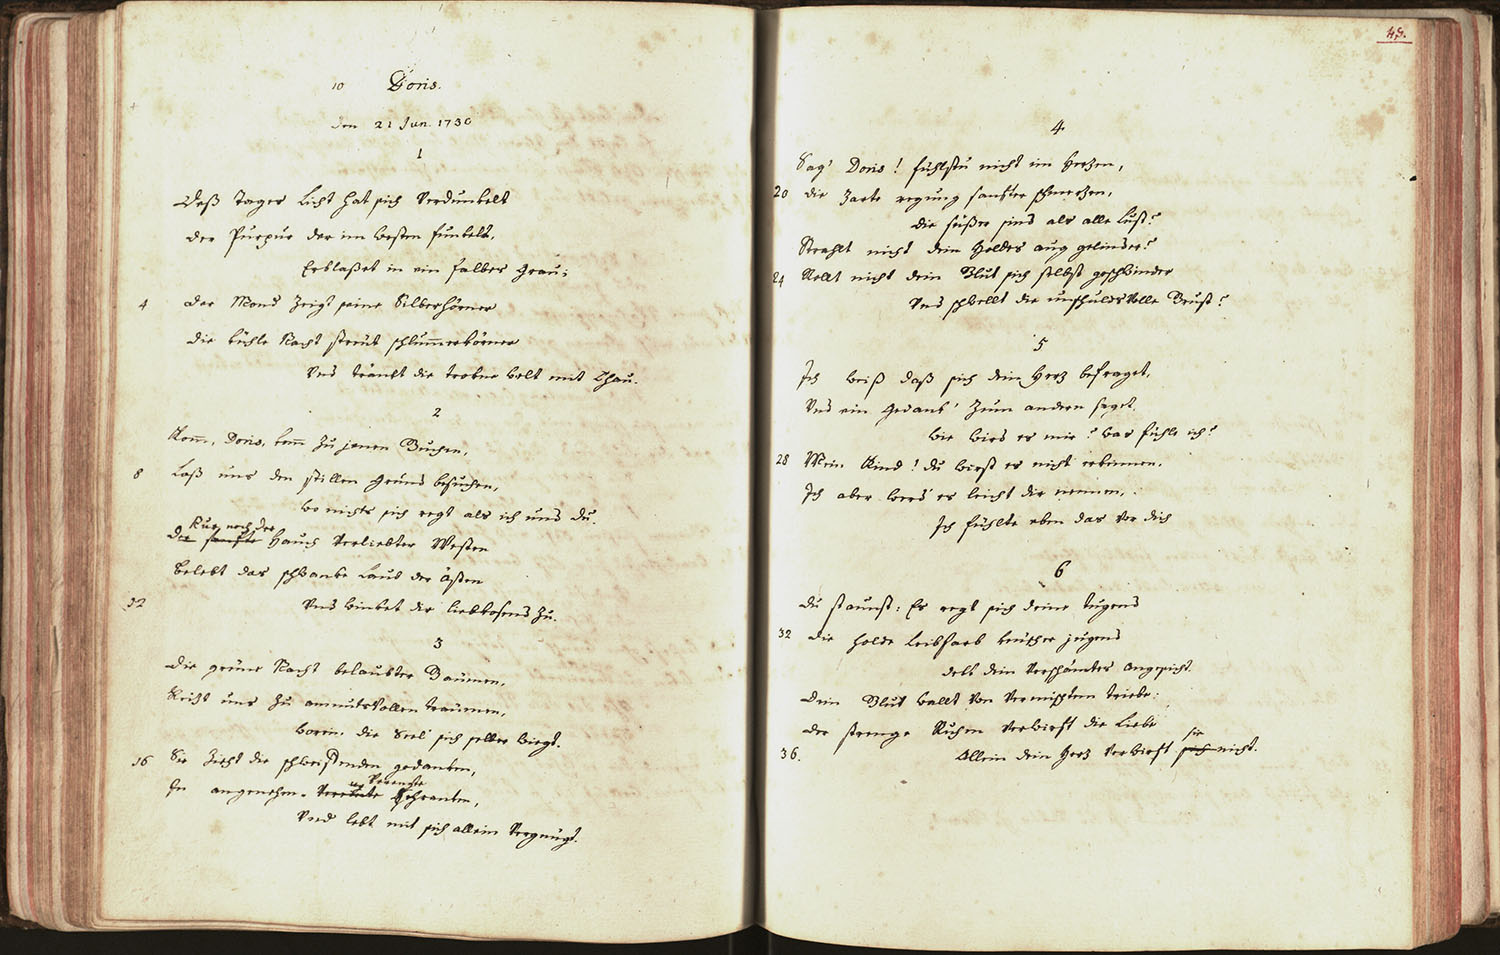 10 Doris.
den 21 Jun. 1730
1
Deß Tages Licht hat sich Verdunkelt
der Purpur der im Westen funkelt,
Erblaßet in ein falbes Grau;
4 der Mond Zeigt seine Silberhörner
die kühle Nacht streut schlummerkörner
Und tränkt die trokne Welt mit Thau.
2
Kom̅, Doris, kom̅ Zu jenen Buchen,
8 Laß uns den stillen Grund besuchen,
Wo nichts sich regt als ich und du.
Nur noch der
der sanfte Hauch Verliebter Westen
Belebt das schwanke Laub der Ästen
12 Und winket dir liebkosend Zu.
3
die grüne Nacht belaubter Bäumen,
Reitzt uns Zu anmuthsVollen träumen,
Worin die Seel' sich selber wiegt.
16 Sie Zieht die schweiffenden gedanken,
In angenehm Verengte Schranken,
Und lebt mit sich allein Vergnügt.
45.
4
Sag' Doris! fühlstu nicht im Herzen,
20 die Zarte regung sanfter schmerzen,
die süßer sind als alle Lust?
Strahlt nicht dein Holdes aug gelinder?
24 Rollt nicht dein Blut sich selbst geschwinder
Und schwellt die unschuldsVolle Brust?
5
Ich weiß daß sich dein Herz befraget,
Und ein Gedank' Zum andern saget,
Wie wird es mir? was fühle ich?
28 Mein Kind! du wirst es nicht erkennen,
Ich aber werd' es leicht dir nennen,
Ich fühlte eben das Vor dich
6
du staunst: Es regt sich deine tugend
32 die holde Leibfarb keuscher jugend
dekt dein Verschämtes angesicht.
dein Blut wallt Von Vermischtem triebe;
der strenge Ruhm Verwirft die Liebe
sie
36. Allein dein Herz Verwirft sich nicht.